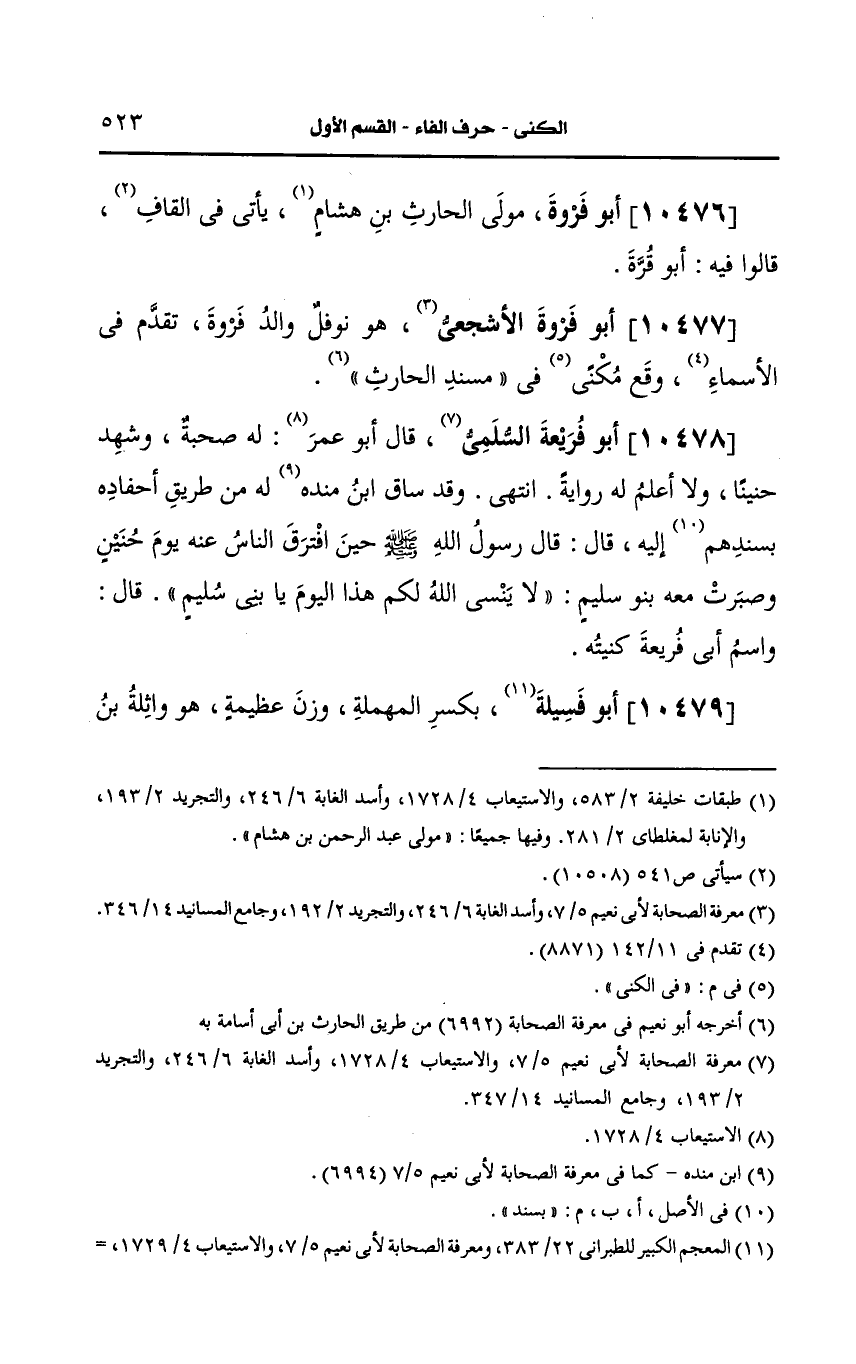 الكنى - حرف الفاء - القسم الأول ٥٢٣
[١٠٤٧٦] أبو فَرْوةَ، مولَى الحارثِ بنِ هشامٍ(١)، يأتى فى القافِ(٢)،
قالوا فيه : أبو قُرَّةَ .
[١٠٤٧٧] أبو فَرْوةَ الأشجعىُّ(٣)، هو نوفلٌ والدُ فَرْوةَ، تقدَّم فى
الأسماءِ(٤)، وقَع مُكْنًى(٥) فى « مسندِ الحارثِ »(٦) .
[١٠٤٧٨] أبو فُرَيْعةَ السُّلَمِىُّ(٧)، قال أبو عمرَ(٨) : له صحبةٌ، وشهِد
حنينًا، ولا أعلمُ له روايةً . انتهى . وقد ساق ابنُ منده(٩) له من طريقِ أحفادِه
بسندِهم(١٠) إليه، قال : قال رسولُ اللهِ ﷺ حينَ افْترَقَ الناسُ عنه يومَ حُنَيْنٍ
وصبَرتْ معه بنو سليمٍ : « لا يَنْسى اللهُ لكم هذا اليومَ يا بنِى سُليمٍ » . قال :
واسمُ أبى فُريعةَ كنيتُه .
[١٠٤٧٩] أبو فَسِيلةَ(١١)، بكسرِ المهملةِ، وزنَ عظيمةٍ، هو واثِلةُ بنُ
(١) طبقات خليفة ٢/ ٥٨٣، والاستيعاب ٤/ ١٧٢٨، وأسد الغابة ٦/ ٢٤٦، والتجريد ٢/ ١٩٣،
والإنابة لمغلطاى ٢/ ٢٨١. وفيها جميعًا : « مولى عبد الرحمن بن هشام » .
(٢) سيأتى ص٥٤١ (١٠٥٠٨) .
(٣) معرفة الصحابة لأبى نعيم ٥/ ٧، وأسد الغابة ٦/ ٢٤٦، والتجريد ٢/ ١٩٢، وجامع المسانيد ١٤/ ٣٤٦.
(٤) تقدم فى ١١/ ١٤٢ (٨٨٧١) .
(٥) فى م : « فى الكنى » .
(٦) أخرجه أبو نعيم فى معرفة الصحابة (٦٩٩٢) من طريق الحارث بن أبى أسامة به
(٧) معرفة الصحابة لأبى نعيم ٥/ ٧، والاستيعاب ٤/ ١٧٢٨، وأسد الغابة ٦/ ٢٤٦، والتجريد
٢/ ١٩٣، وجامع المسانيد ١٤/ ٣٤٧.
(٨) الاستيعاب ٤/ ١٧٢٨.
(٩) ابن منده - كما فى معرفة الصحابة لأبى نعيم ٥/ ٧ (٦٩٩٤) .
(١٠) فى الأصل، أ، ب، م : « بسند » .
(١١) المعجم الكبير للطبرانى ٢٢/ ٣٨٣، ومعرفة الصحابة لأبى نعيم ٥/ ٧، والاستيعاب ٤/ ١٧٢٩، =